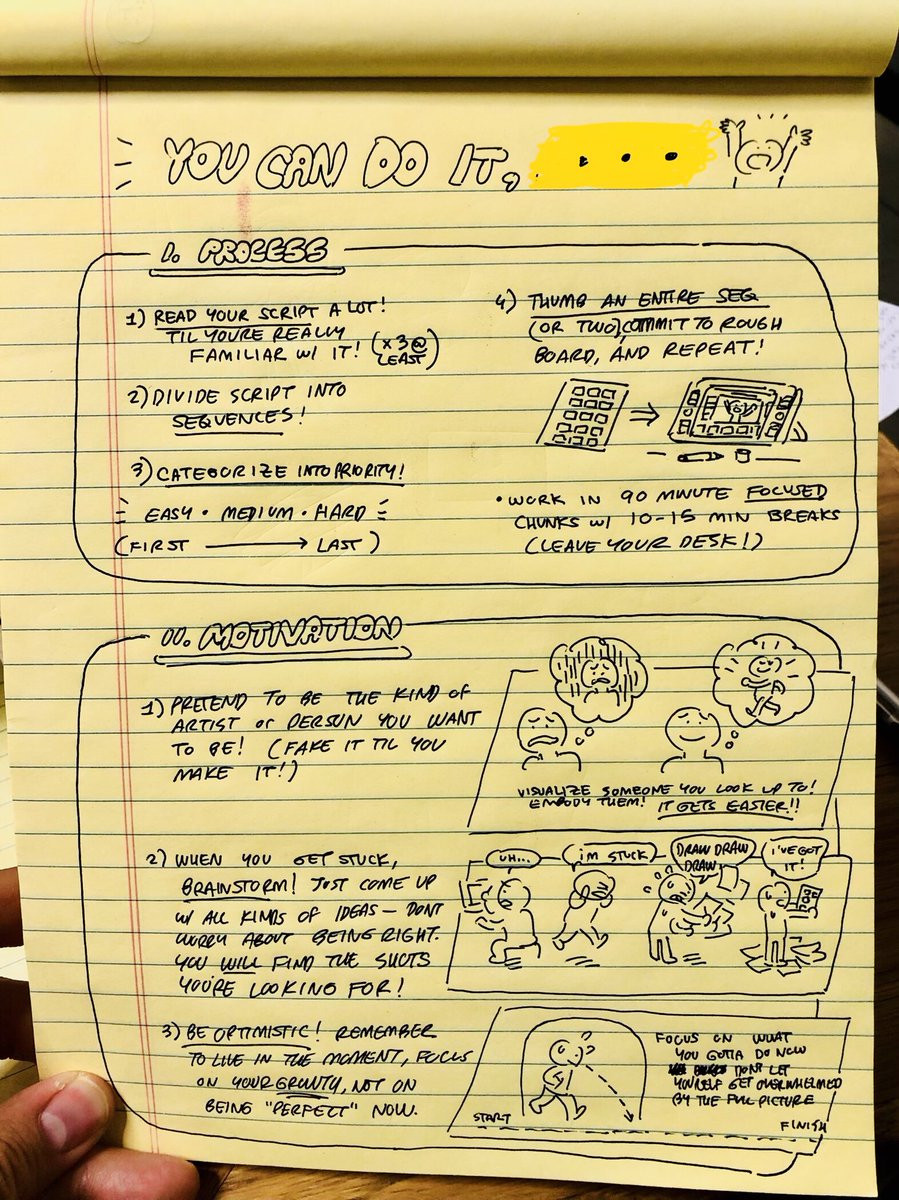 YOU CAN DO IT, ...
I. PROCESS
1) READ YOUR SCRIPT A LOT!
TIL YOURE REALLY
FAMILIAR W/ IT! (x3@
LEAST)
2) DIVIDE SCRIPT INTO
SEQUENCES!
3) CATEGORIZE INTO PRIORITY!
EASY • MEDIUM • HARD
(FIRST → LAST)
4) THUMB AN ENTIRE SEQ
(OR TWO), COMMIT TO ROUGH
BOARD, AND REPEAT!
• WORK IN 90 MINUTE FOCUSED
CHUNKS W/ 10-15 MIN BREAKS
(LEAVE YOUR DESK!)
II. MOTIVATION
1) PRETEND TO BE THE KIND OF
ARTIST or PERSON YOU WANT
TO BE! (FAKE IT TIL YOU
MAKE IT!)
VISUALIZE SOMEONE YOU LOOK UP TO!
EMBODY THEM! IT GETS EASIER!!
2) WHEN YOU GET STUCK,
BRAINSTORM! JUST COME UP
W/ ALL KINDS OF IDEAS — DONT
WORRY ABOUT BEING RIGHT.
YOU WILL FIND THE SHOTS
YOU'RE LOOKING FOR!
UH...
I'M STUCK
DRAW DRAW
DRAW
I'VE GOT
IT!
3) BE OPTIMISTIC! REMEMBER
TO LIVE IN THE MOMENT, FOCUS
ON YOUR GROWTH, NOT ON
BEING "PERFECT" NOW.
FOCUS ON WHAT
YOU GOTTA DO NOW
DONT LET
YOURSELF GET OVERWHELMED
BY THE FULL PICTURE
START
FINISH